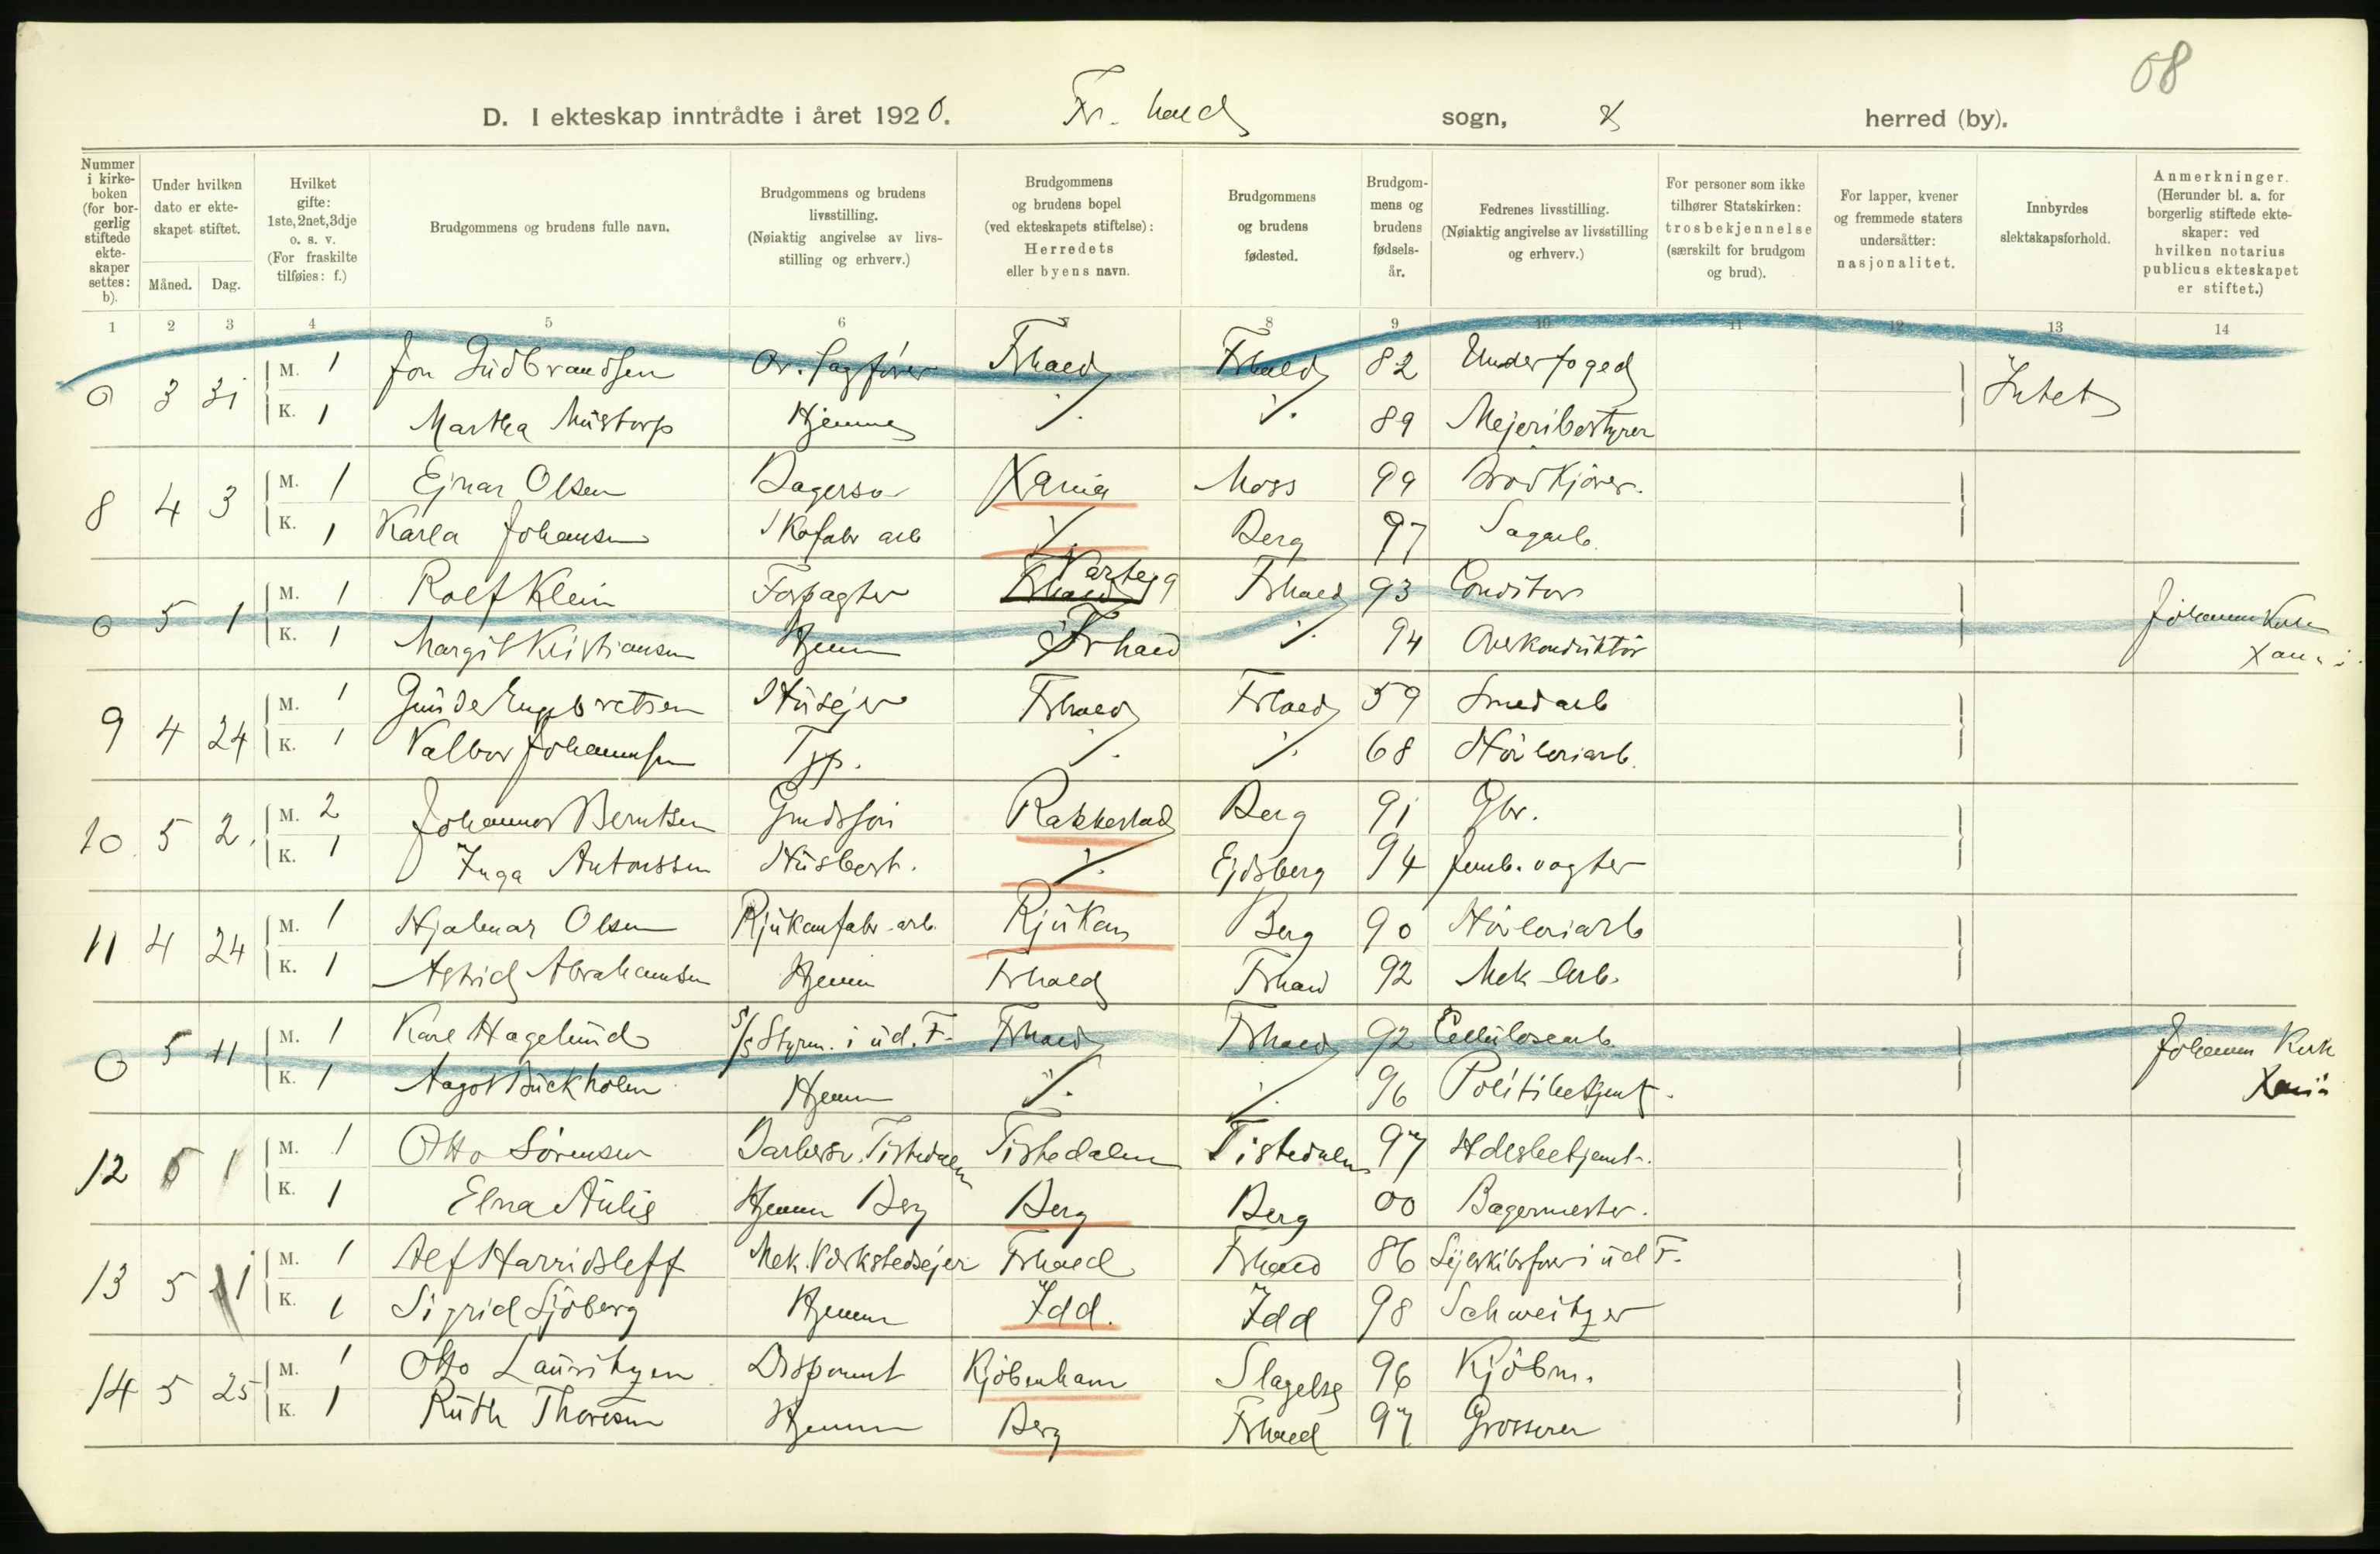 08
D. I ekteskap inntrådte i året 1920. Fr. hald sogn, herred (by).
Nummer i kirkeboken (for borgerlig stiftede ekteskaper settes: b).
Under hvilken dato er ekteskapet stiftet.
Måned. Dag.
Hvilket gifte: 1ste, 2net, 3dje o. s. v. (For fraskilte tilføies: f.)
Brudgommens og brudens fulle navn.
Brudgommens og brudens livsstilling. (Nøiaktig angivelse av livsstilling og erhverv.)
Brudgommens og brudens bopel (ved ekteskapets stiftelse): Herredets eller byens navn.
Brudgommens og brudens fødested.
Brudgommens og brudens fødselsår.
Fedrenes livsstilling. (Nøiaktig angivelse av livsstilling og erhverv.)
For personer som ikke tilhører Statskirken: trosbekjennelse (særskilt for brudgom og brud).
For lapper, kvener og fremmede staters undersåtter: nasjonalitet.
Innbyrdes slektskapsforhold.
Anmerkninger. (Herunder bl. a. for borgerlig stiftede ekteskaper: ved hvilken notarius publicus ekteskapet er stiftet.)
1 2 3 4 5 6 7 8 9 10 11 12 13 14
0 3 31 M. 1 Jon Gudbrandsen Or. Sagfører Frhald Frhald 82 Underfoged Intet
K. 1 Martha Mustorp Hjemme ./. ./. 89 Mejeribestyrer
8 4 3 M. 1 Ejnar Olsen Bagersv Xania Moss 99 Brødkjører.
K. 1 Karla Johansen Skofabr arb ./. Berg 97 Sagarb.
0 5 1 M. 1 Rolf Klein Forpagter Frhald Varteig Frhald 93 Conditor Johannes Kirke
K. 1 Margit Kristiansen Hjemm Frhald ./. 94 Overkonduktör Xania
9 4 24 M. 1 Gunde Engebretsen Husejer Frhald Frhald 59 Smedarb
K. 1 Valbor Johannesen Tjp. ./. ./. 68 Hövleriarb.
10 5 2. M. 2 Johannes Berntsen Grudsfori Rakkestad Berg 91 Gbr.
K. 1 Inga Antonssen Husbest. ./. Ejdsberg 94 Jernb. vogter
11 4 24 M. 1 Hjalmar Olsen Rjukanfabr. arb. Rjukan Berg 90 Hövleriarb
K. 1 Astrid Abrahamsen Hjemm Frhald Frhald 92 Mek Arb.
0 5 11 M. 1 Karl Hagelund S/S Styrm. i ud. F. Frhald Frhald 92 Cellulosearb. Johannes Kirk
K. 1 Aagot Buckholm Hjemm ./. ./. 96 Politibetjent. Xania
12 5 1 M. 1 Otto Sörensen Barbersv. Tistedalen Tistedalen Tistedalen 97 Hdlsbetjent.
K. 1 Elna Aulie Hjemm Berg Berg Berg 00 Bagermester.
13 5 11 M. 1 Alf Harridsleff Mek. Værkstedsejer Frhald Frhald 86 Sejlskibsförer i ud F.
K. 1 Sigrid Sjöberg Hjemm Idd. Idd 98 Schweitzer
14 5 25 M. 1 Otto Lauritzen Disponent Kjöbenham Slagelse 96 Kjöbm.
K. 1 Ruth Thoresen Hjemm Berg Frhald 97 Grosserer